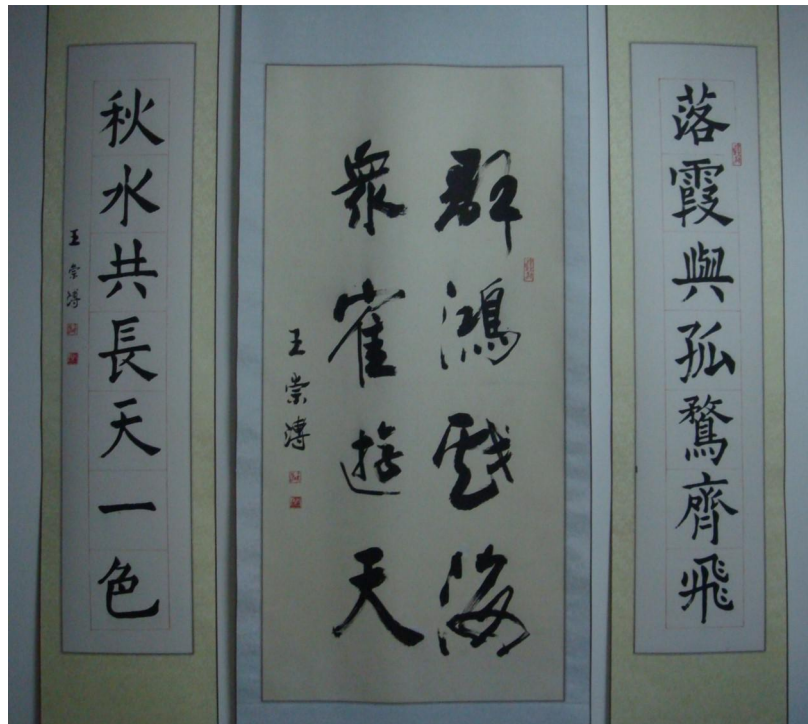 落霞與孤鶩齊飛
群鴻戲海
眾隺遊天
王崇溥
秋水共長天一色
王崇溥